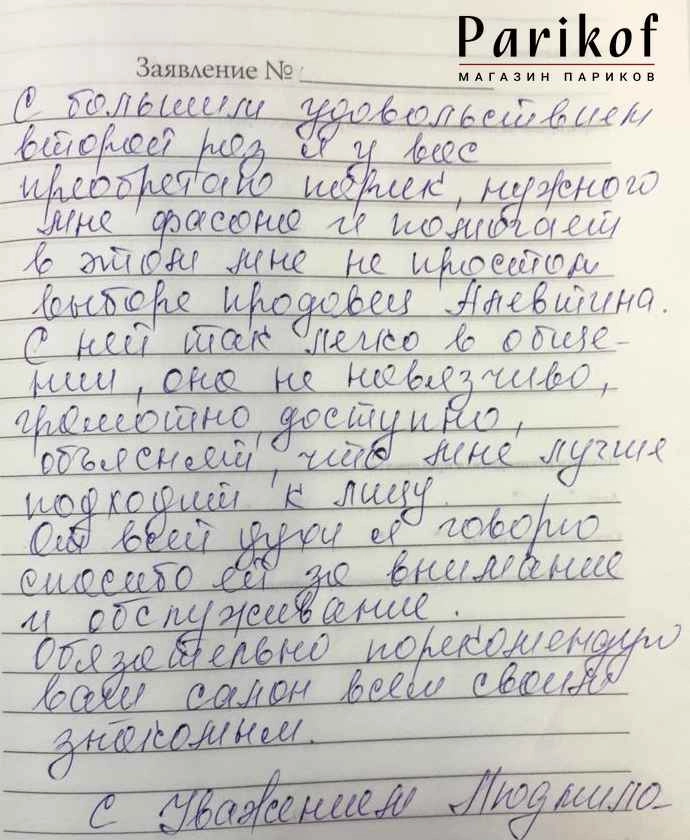 Parikof
МАГАЗИН ПАРИКОВ
Заявление №
С большим удовольствием
второй раз я у вас
приобретаю парик, нужного
мне фасона и помогает
в этом мне не простом
выборе продавец Алевтина.
С ней так легко в обще-
нии, она не навязчиво,
грамотно, доступно,
объясняет, что мне лучше
подходит к лицу.
От всей души я говорю
спасибо ей за внимание
и обслуживание.
Обязательно порекомендую
ваш салон всем своим
знакомым.
С Уважением Людмила